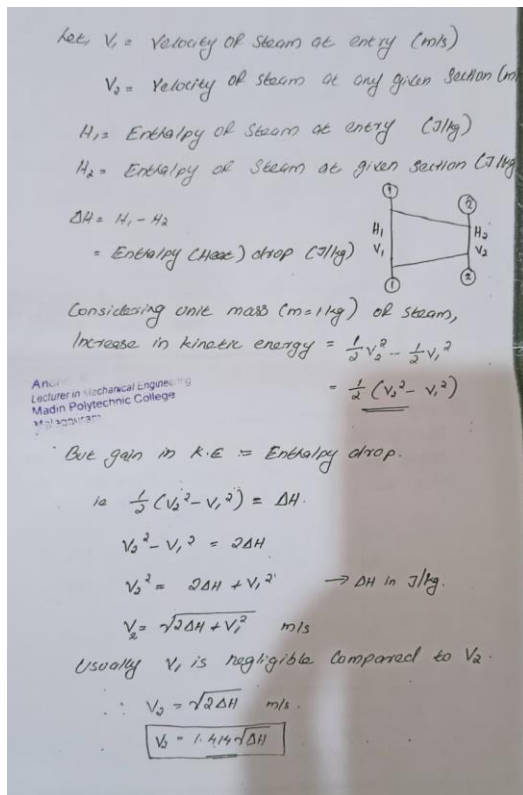 Let, V₁ = Velocity of steam at entry (m/s)
V₂ = Velocity of steam at any given section (m
H₁ = Enthalpy of steam at entry (J/kg)
H₂ = Enthalpy of steam at given section (J/kg
ΔH = H₁ - H₂
= Enthalpy (Heat) drop (J/kg)
1 2
H₁ H₂
V₁ V₂
1 2
Considering unit mass (m=1kg) of steam,
Increase in kinetic energy = 1/2 V₂² - 1/2 V₁²
= 1/2 (V₂² - V₁²)
Lecturer in Mechanical Engineering
Madin Polytechnic College
But gain in K.E = Enthalpy drop.
ie 1/2 (V₂² - V₁²) = ΔH.
V₂² - V₁² = 2ΔH
V₂² = 2ΔH + V₁² → ΔH in J/kg.
V₂ = √2ΔH + V₁² m/s
Usually V₁ is negligible compared to V₂.
∴ V₂ = √2ΔH m/s.
V₂ = 1.414√ΔH